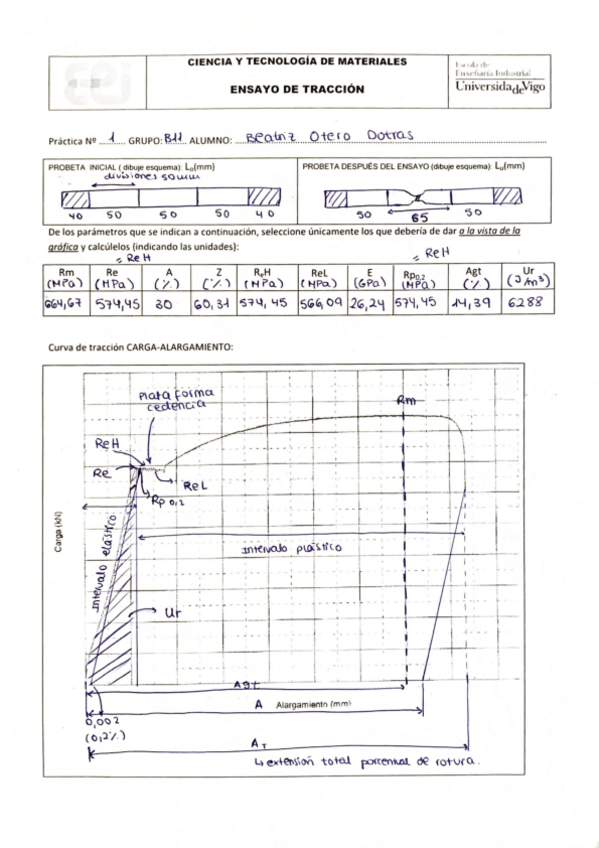 CIENCIA Y TECNOLOGÍA DE MATERIALES
ENSAYO DE TRACCIÓN
Escola de
Enxeñaría Industrial
Universidade Vigo
Práctica Nº 1 GRUPO: B11 ALUMNO: Beatriz Otero Dotras
PROBETA INICIAL ( dibuje esquema) L₀(mm)
divisiones 50mm
40 50 50 50 40
PROBETA DESPUÉS DEL ENSAYO (dibuje esquema) Lᵤ(mm)
50 65 50
De los parámetros que se indican a continuación, seleccione únicamente los que debería de dar a la vista de la
gráfica y calcúlelos (indicando las unidades):
= ReH = ReH
Rm Re A Z ReH ReL E Rp0,2 Agt Ur
(MPa) (MPa) (%) (%) (MPa) (MPa) (GPa) (MPa) (%) (J/m³)
664,67 574,45 30 60,31 574,45 566,09 26,24 574,45 14,39 6288
Curva de tracción CARGA-ALARGAMIENTO:
Plataforma
cedencia
Rm
ReH
Re
ReL
Rp 0,2
Carga (kN)
intervalo elástico
intervalo plástico
Ur
Agt
A Alargamiento (mm)
0,002
(0,2%)
AT
↳ extensión total porcentual de rotura.